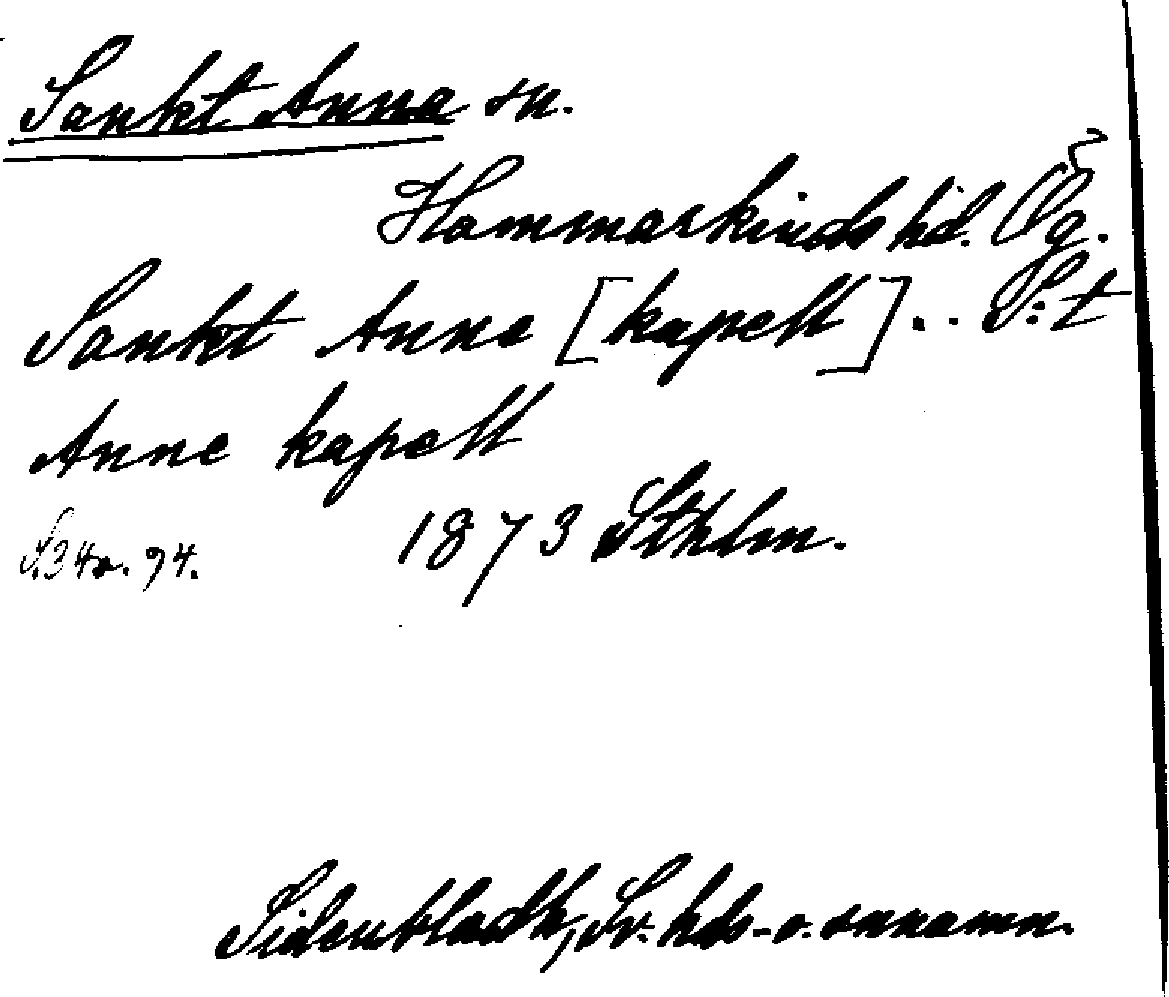 Sankt Anna sn.
Hammarkinds hd. Ög.
Sankt Anne [kapell].. S:t
Anne kapell
1873 Sthlm.
S.34 o. 94.
Sidenbladh, Sv. hds- o. snnamn.